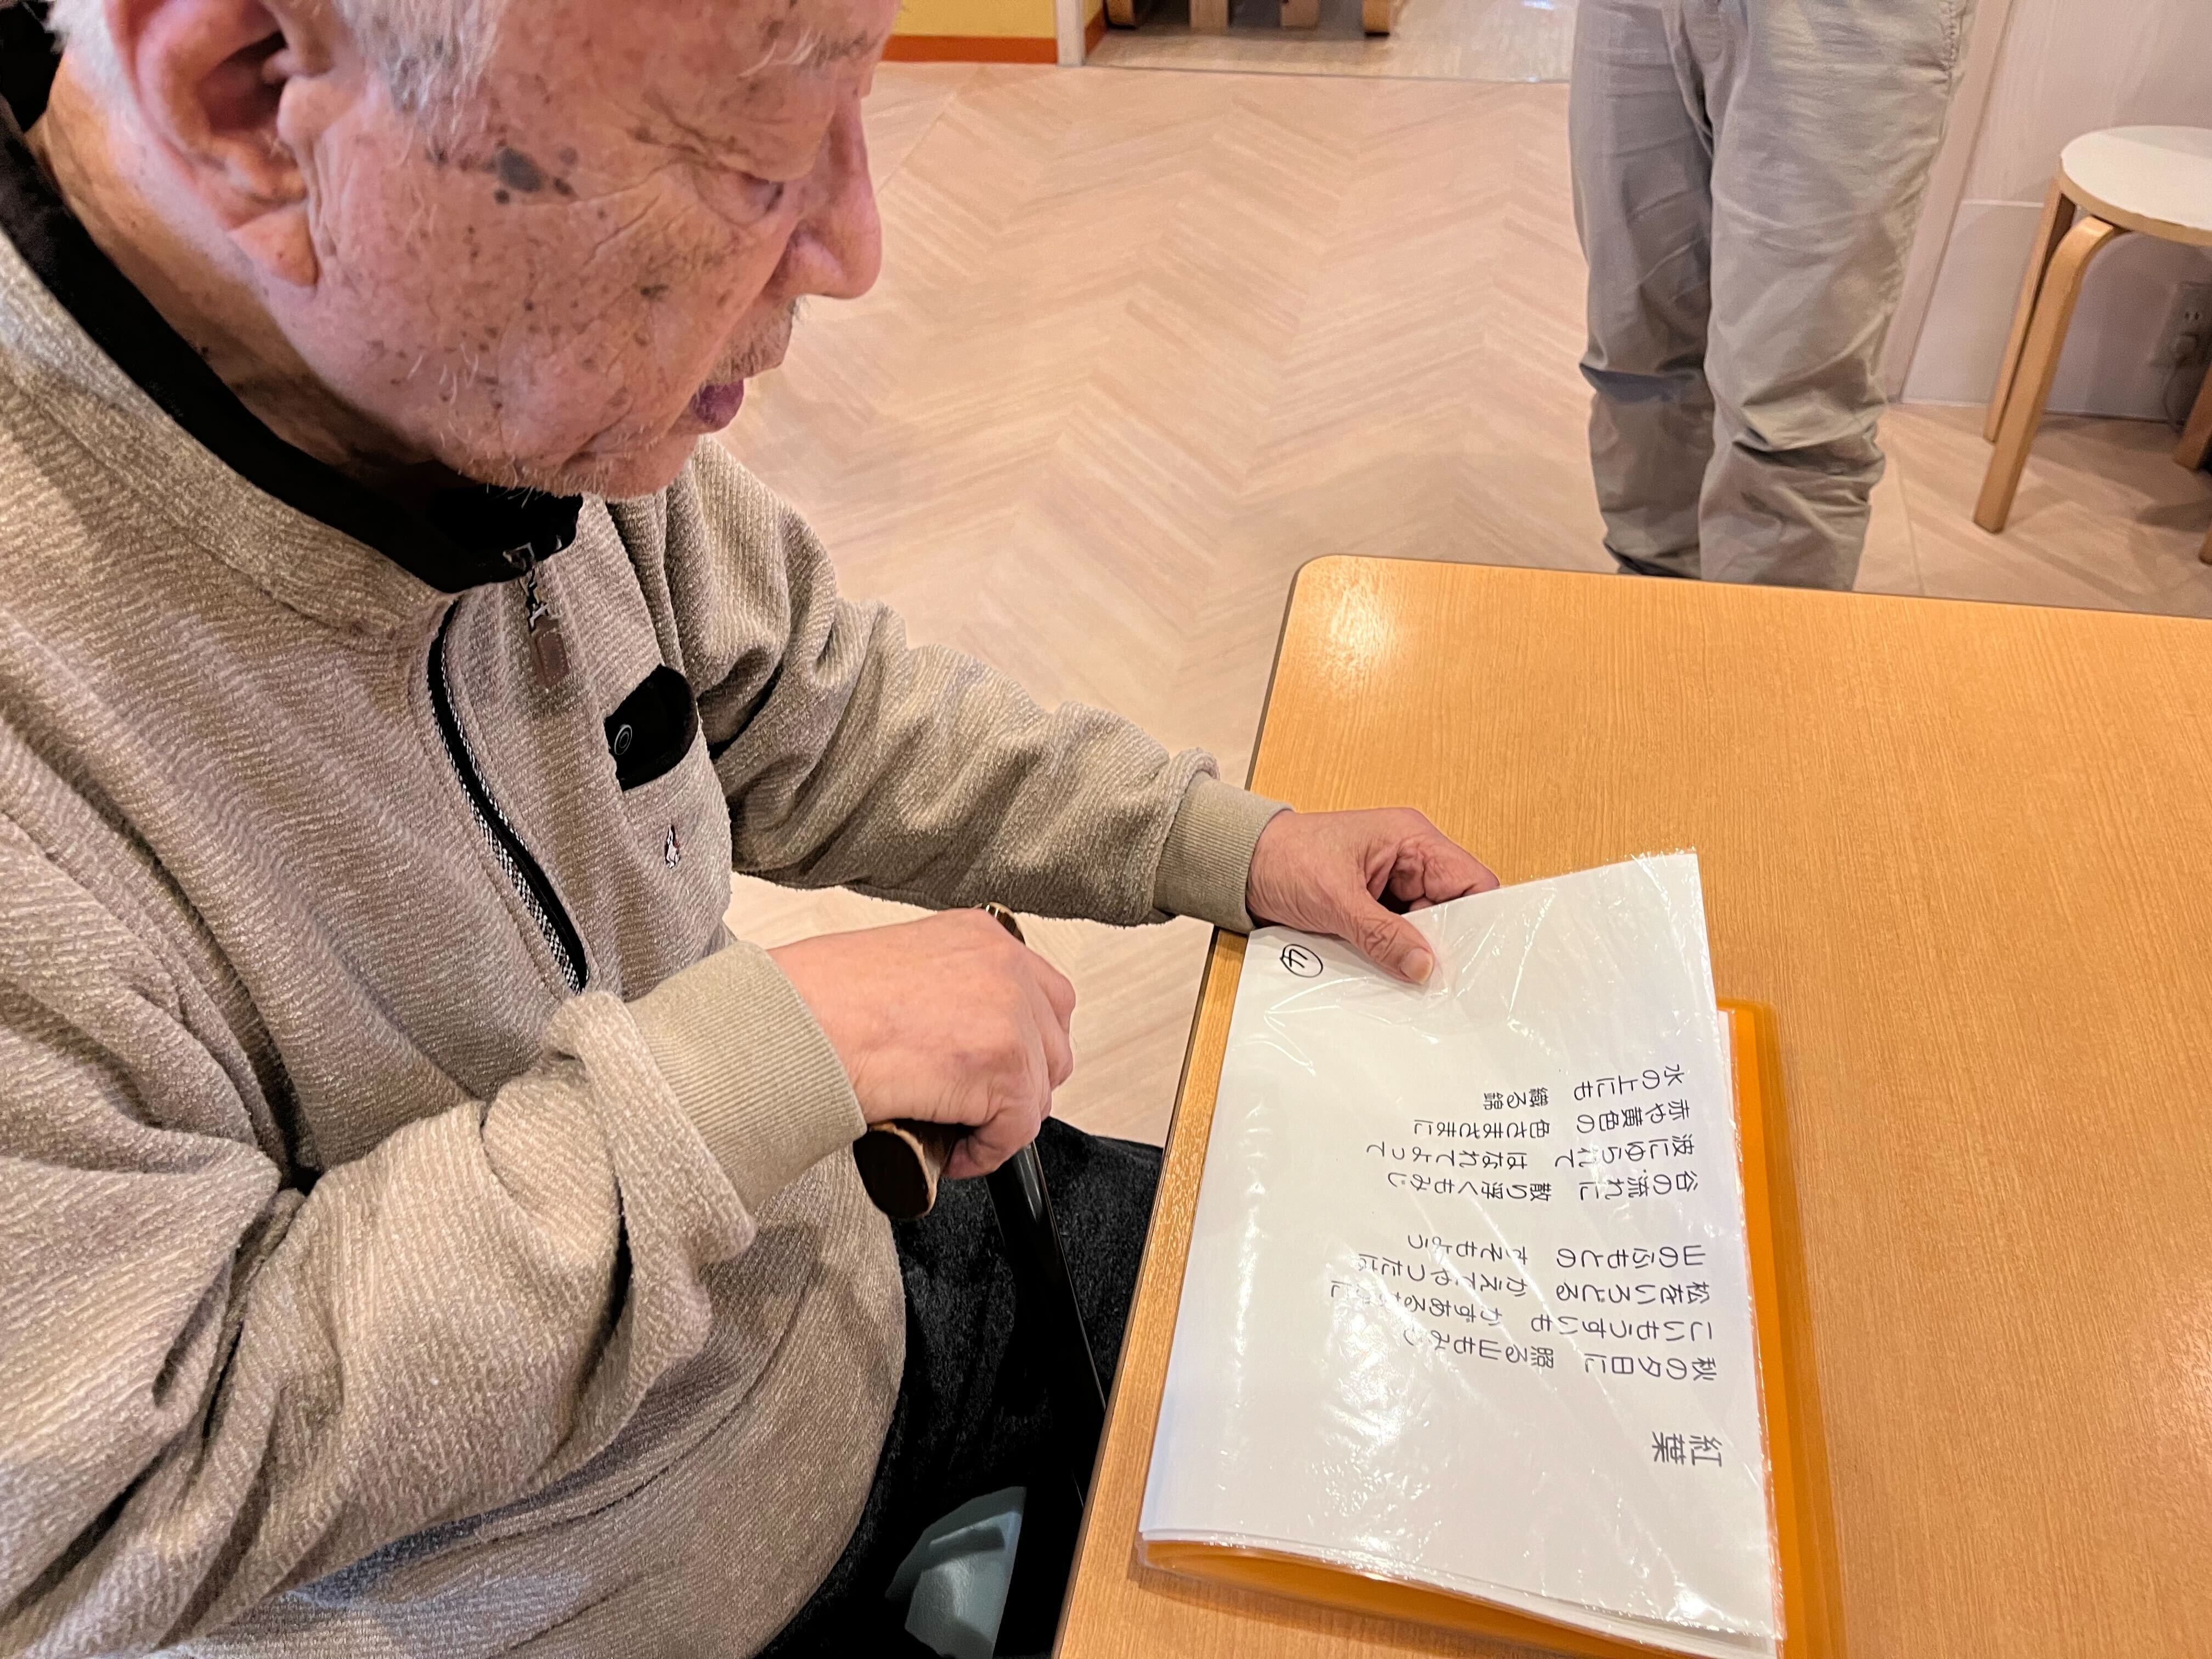 紅葉
秋の夕日に 照る山もみじ
こいもうすいも かずある中に
松をいろどる かえでやつたは
山のふもとの すそもよう
谷の流れに 散り浮くもみじ
波にゆられて はなれてよって
赤や黄色の 色さまざまに
水の上にも 織る錦